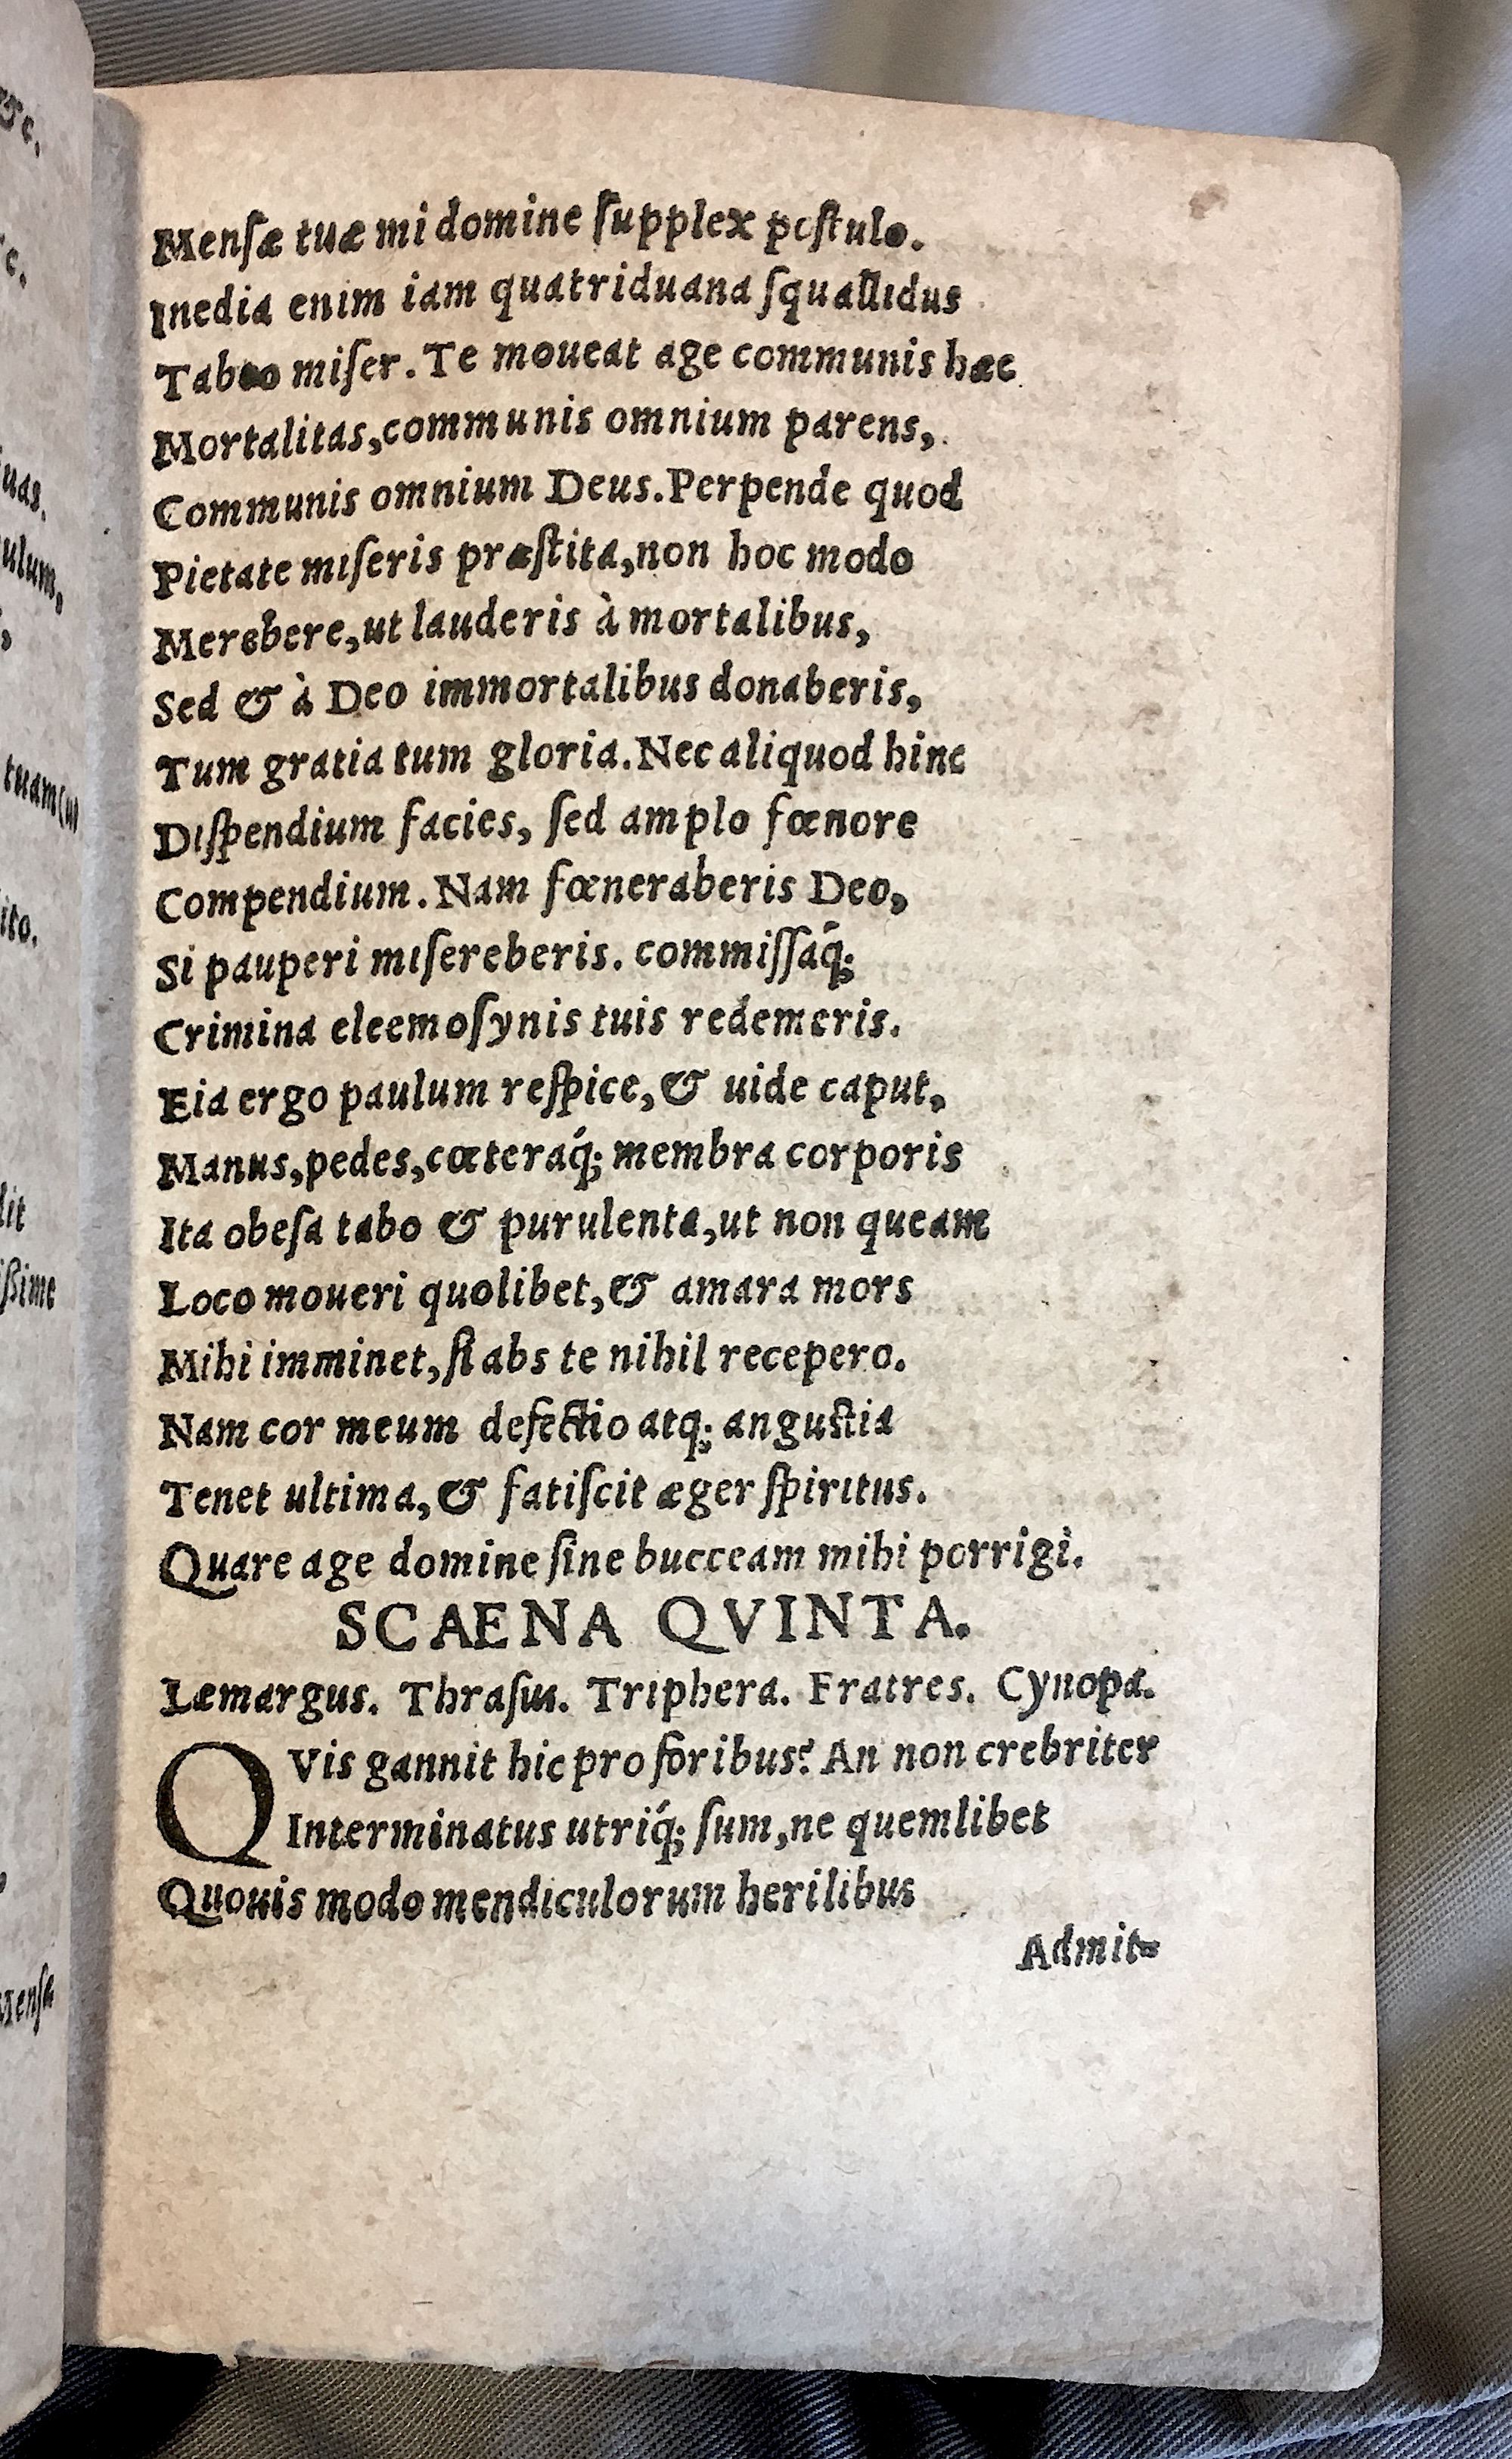 Mensæ tuæ mi domine ſupplex poſtulo.
Inedia enim iam quatriduana ſquallidus
Tabeo miſer. Te moueat age communis hæc
Mortalitas, communis omnium parens,
Communis omnium Deus. Perpende quod
Pietate miſeris præſtita, non hoc modo
Merebere, ut lauderis à mortalibus,
Sed & à Deo immortalibus donaberis,
Tum gratia tum gloria. Nec aliquod hinc
Diſpendium facies, ſed amplo fœnore
Compendium. Nam fœneraberis Deo,
Si pauperi miſereberis. commiſſaq́;
Crimina eleemoſynis tuis redemeris.
Eia ergo paulum reſpice, & uide caput,
Manus, pedes, cœteraq́; membra corporis
Ita obeſa tabo & purulenta, ut non queam
Loco moueri quolibet, & amara mors
Mihi imminet, ſi abs te nihil recepero.
Nam cor meum defectio atq; anguſtia
Tenet ultima, & fatiſcit æger ſpiritus.
Quare age domine ſine bucceam mihi porrigi.
SCAENA QVINTA.
Læmargus. Thraſius. Triphera. Fratres. Cynopa.
QVis gannit hic pro foribus? An non crebriter
Interminatus utriq́; ſum, ne quemlibet
Quouis modo mendiculorum herilibus
Admit=